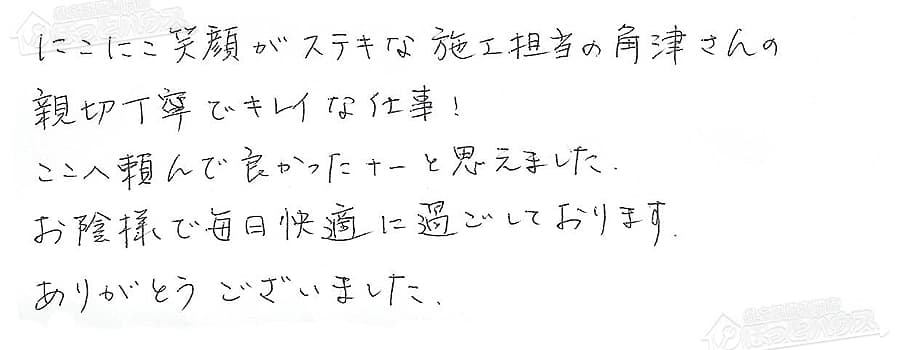 にこにこ笑顔がステキな施工担当の角津さんの
親切丁寧でキレイな仕事!
ここへ頼んで良かったナーと思えました.
お陰様で毎日快適に過ごしております.
ありがとうございました.